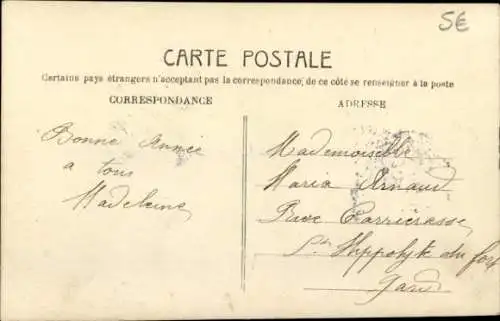 5E
CARTE POSTALE
Certains pays étrangers n'acceptant pas la correspondance, de ce côté se renseigner à la poste
CORRESPONDANCE
ADRESSE
Bonne Année
a tous
Madeleine
Mademoiselle
Maria Arnaud
St Hippolyte du fort
Gard